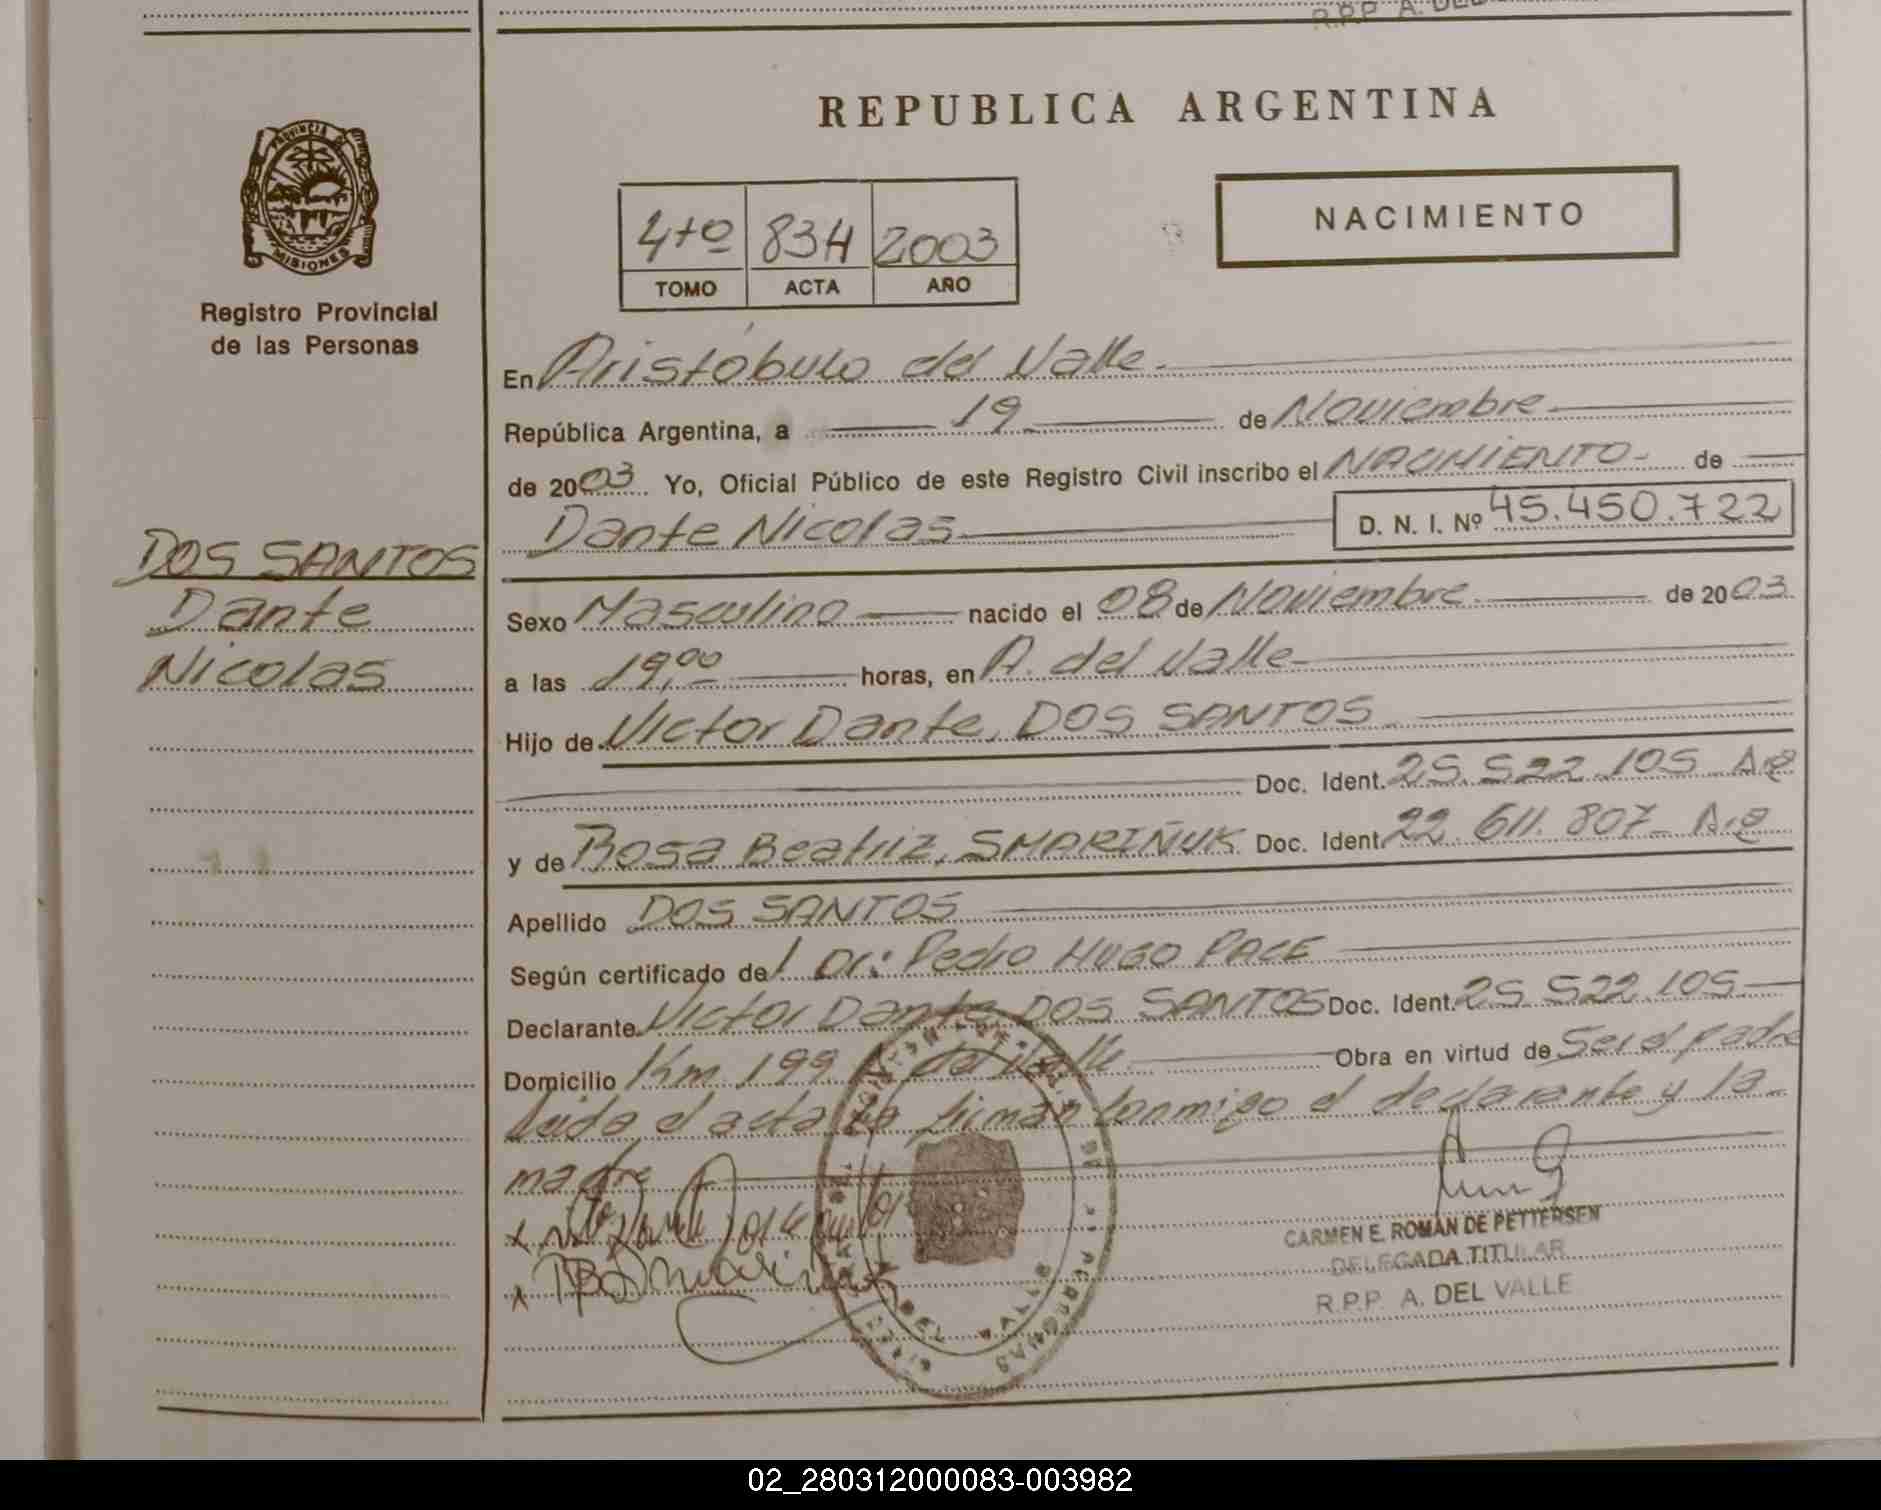 R.P.P. A. DEL
PROVINCIA DE
MISIONES
Registro Provincial
de las Personas
DOS SANTOS
Dante
Nicolas
REPUBLICA ARGENTINA
4to 834 2003
TOMO ACTA AÑO
NACIMIENTO
En Aristóbulo del Valle.
República Argentina, a 19 de Noviembre
de 2003 Yo, Oficial Público de este Registro Civil inscribo el NACIMIENTO de
Dante Nicolas D. N. I. Nº 45.450.722
Sexo Masculino nacido el 08 de Noviembre de 2003
a las 19,00 horas, en A. del Valle
Hijo de Victor Dante, DOS SANTOS
Doc. Ident. 25.522.105 Arg
y de Rosa Beatriz, SMARIÑUK Doc. Ident. 22.611.807 Arg
Apellido DOS SANTOS
Según certificado del Dr: Pedro HUGO PACE
Declarante Victor Dante DOS SANTOS Doc. Ident. 25.522.105
Domicilio Km 199 A. del Valle Obra en virtud de Ser el padre
Leida el acta la firman conmigo el declarante y la
madre
x
x
CARMEN E. ROMAN DE PETTERSEN
DELEGADA TITULAR
R.P.P. A. DEL VALLE
02_280312000083-003982